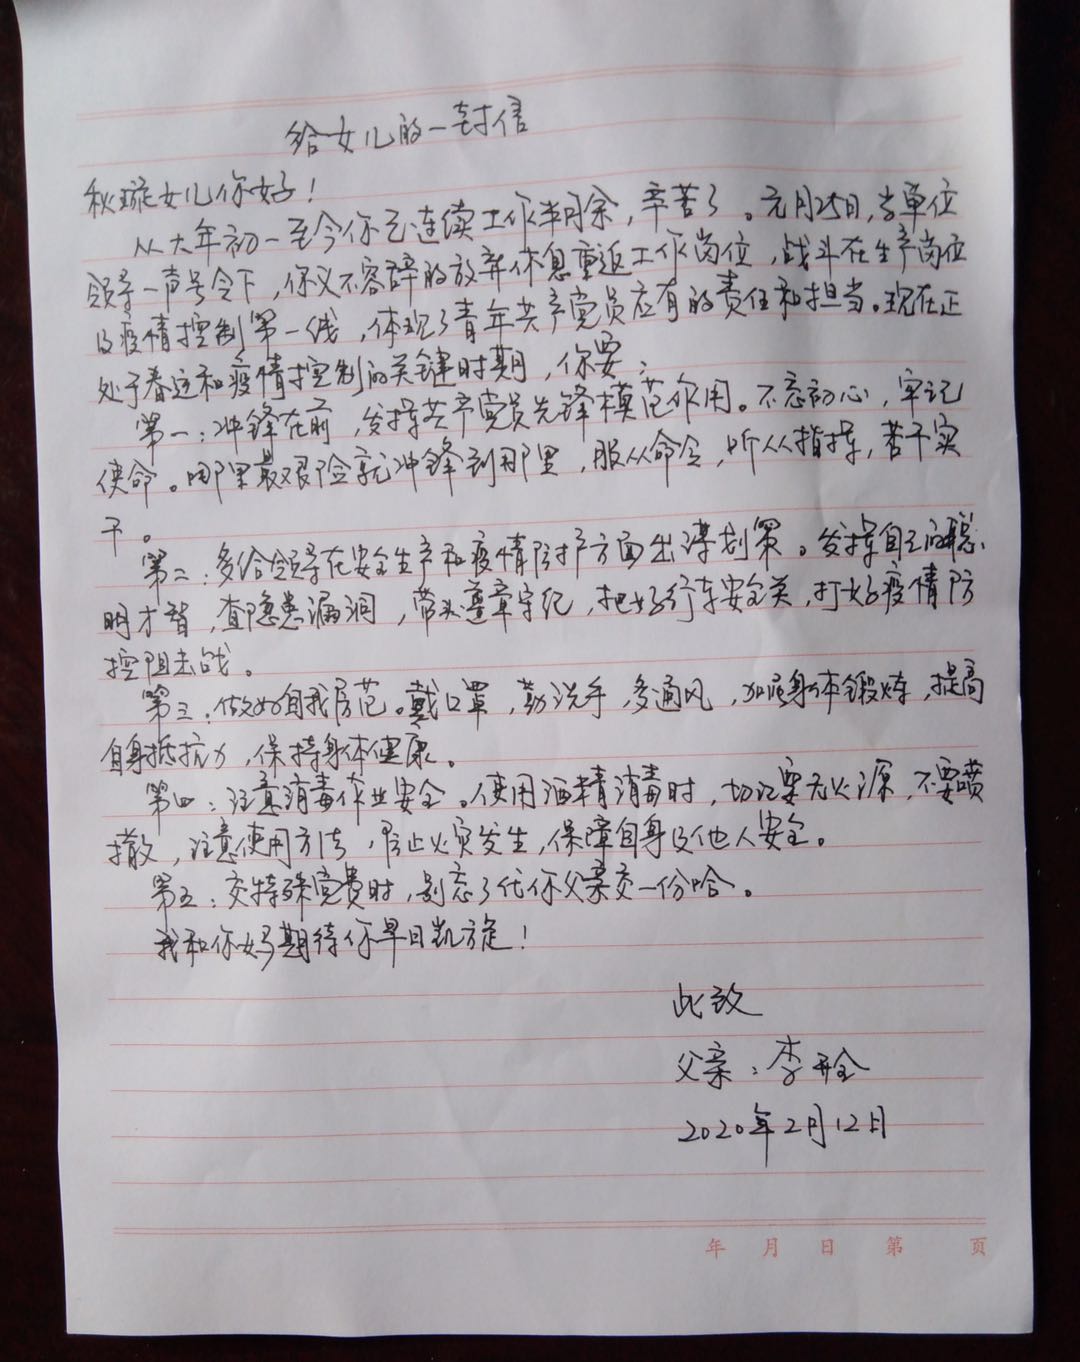 给女儿的一封信
秋璇女儿你好！
从大年初一至今你已连续工作半月余，辛苦了。元月25日，当单位
领导一声号令下，你义不容辞的放弃休息重返工作岗位，战斗在生产岗位
及疫情控制第一线，体现了青年共产党员应有的责任和担当。现在正
处于春运和疫情控制的关键时期，你要：
第一：冲锋在前，发挥共产党员先锋模范作用。不忘初心，牢记
使命。哪里最艰险就冲锋到那里，服从命令，听从指挥，苦干实
干。
第二：多给领导在安全生产和疫情防护方面出谋划策。发挥自己的聪
明才智，查隐患漏洞，带头遵章守纪，把好行车安全关，打好疫情防
控阻击战。
第三：做好自我防范。戴口罩，勤洗手，多通风，加强身体锻炼，提高
自身抵抗力，保持身体健康。
第四：注意消毒作业安全。使用酒精消毒时，切记要无火源，不要喷
撒，注意使用方法，防止火灾发生，保障自身及他人安全。
第五：交特殊党费时，别忘了代你父亲交一份哈。
我和你妈期待你早日凯旋！
此致
父亲：李全
2020年2月12日
年 月 日 第 页